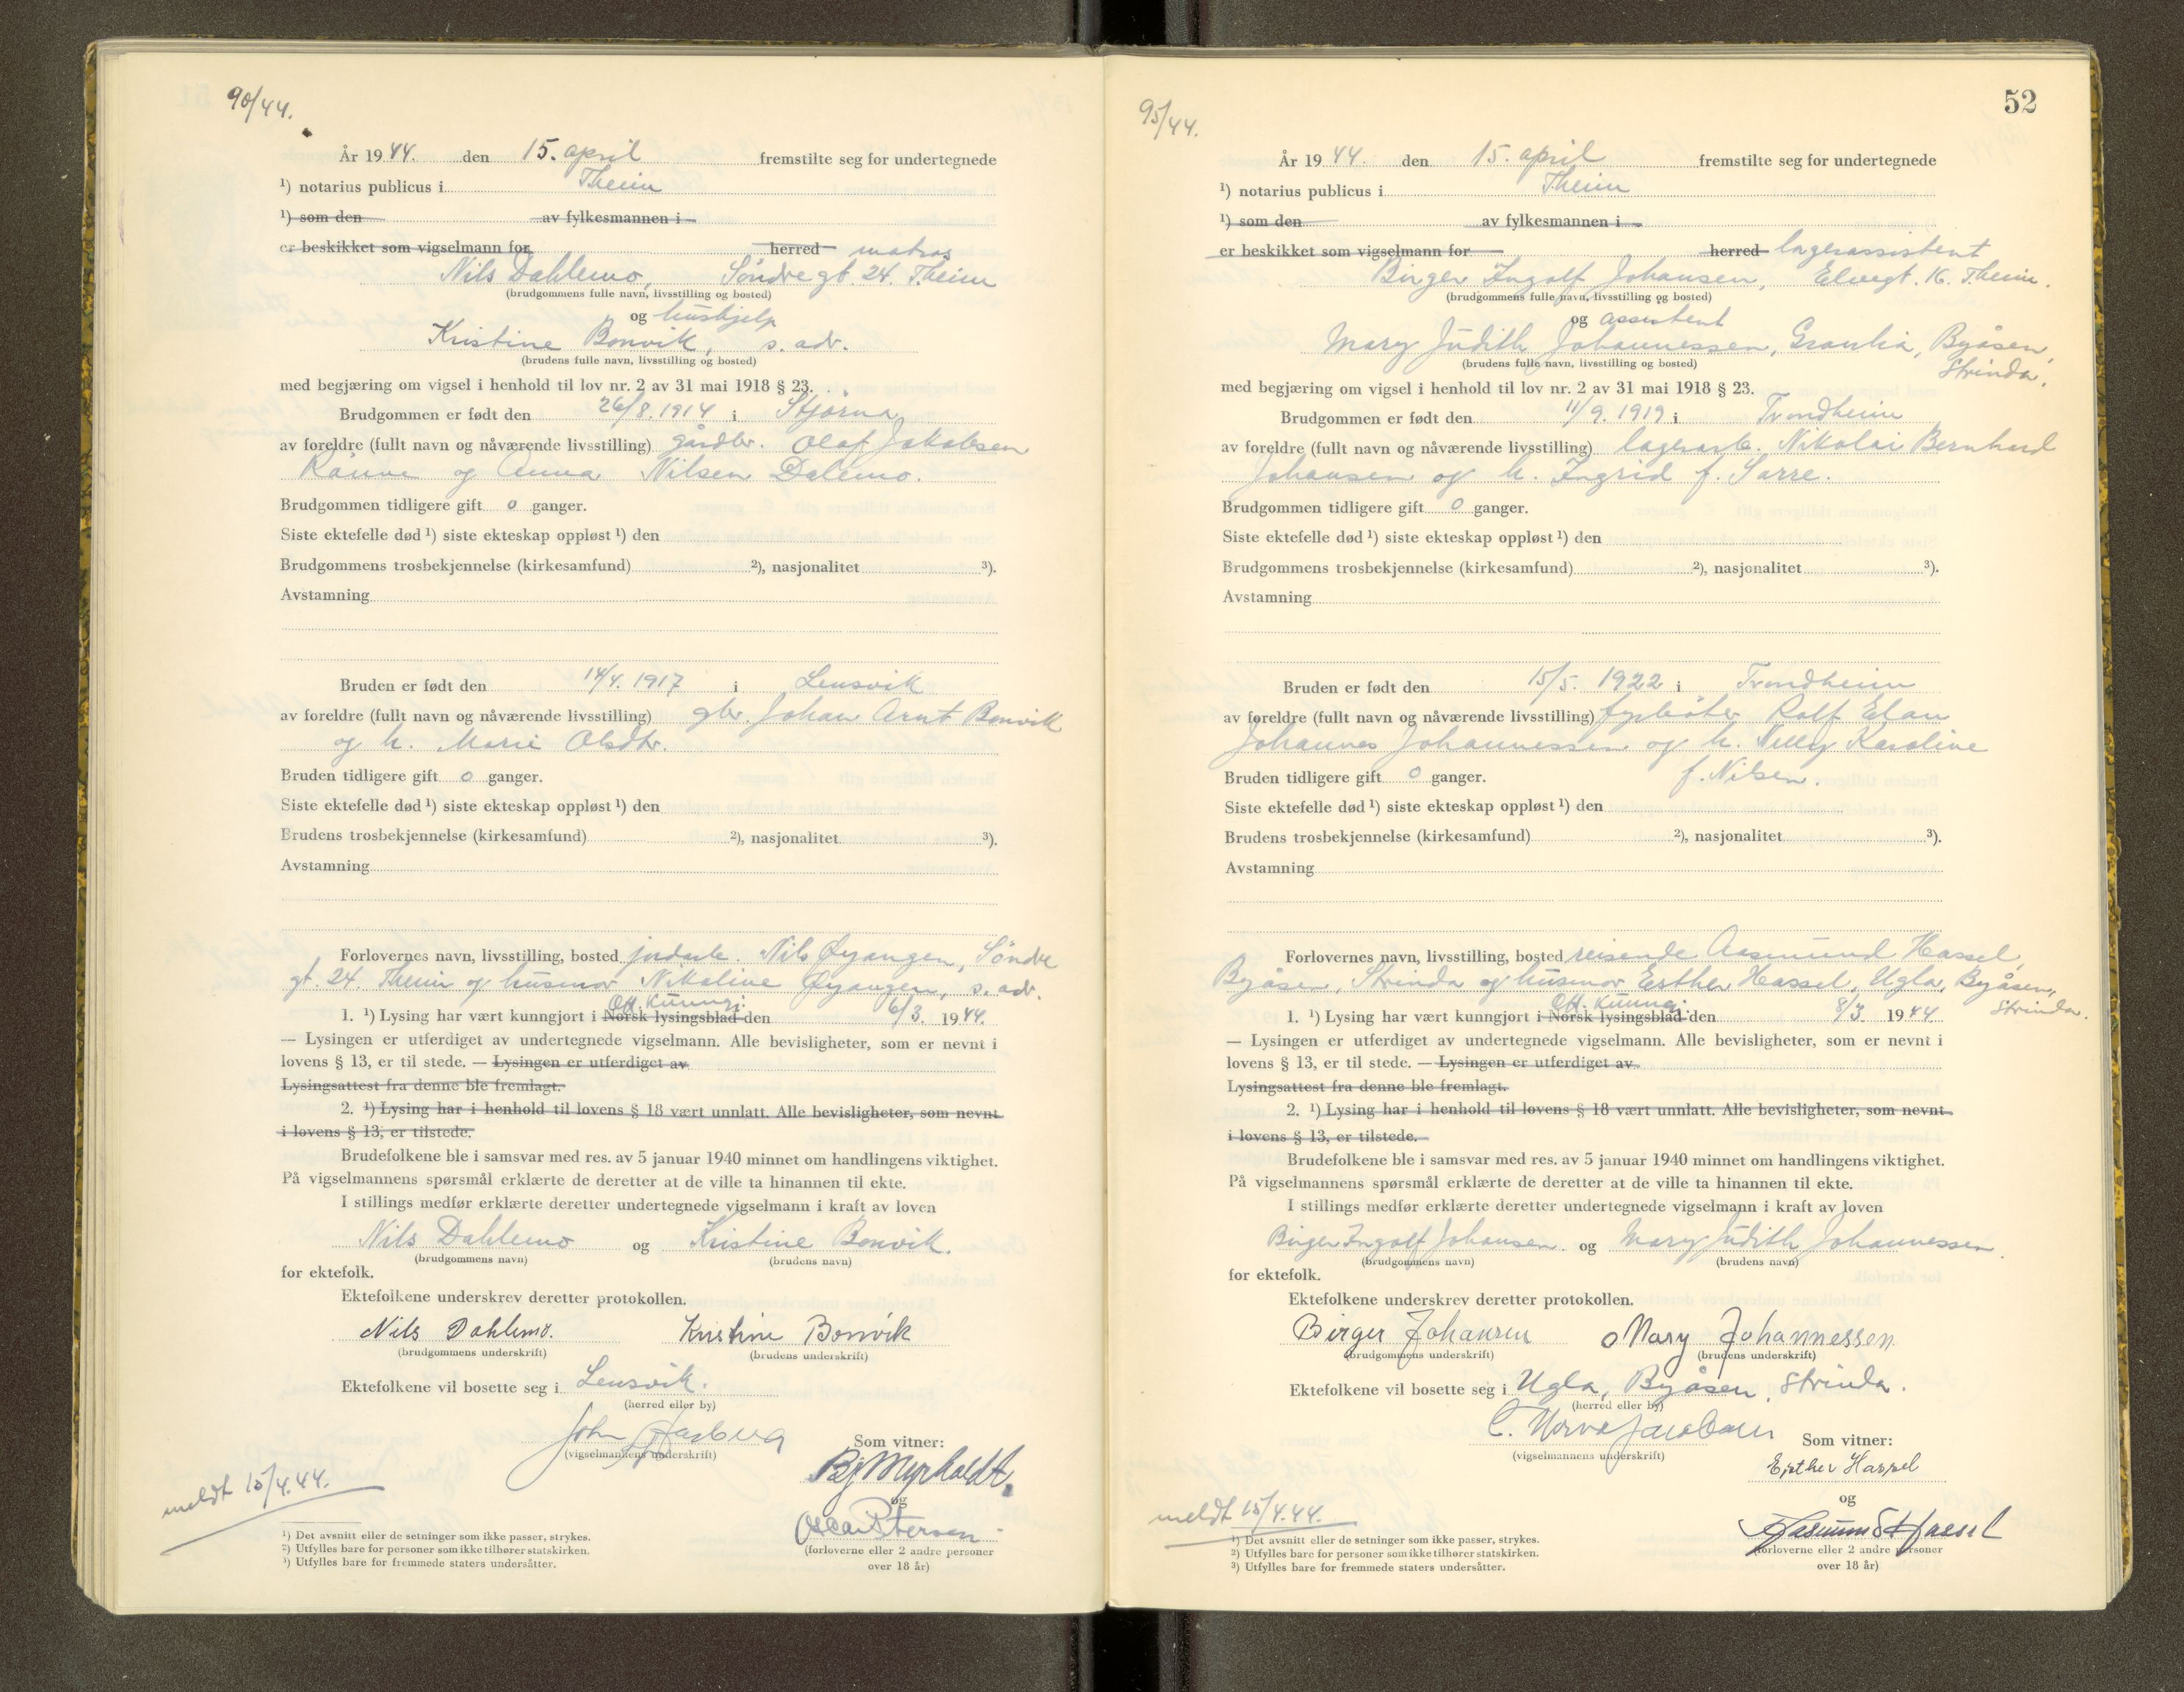 90/44.
År 1944. den 15. april fremstilte seg for undertegnede
¹) notarius publicus i Theim
¹) som den av fylkesmannen i
er beskikket som vigselmann for herred matros
Nils Dahlemo, Søndre gt. 24. Theim
(brudgommens fulle navn, livsstilling og bosted)
og hushjelp
Kristine Bonvik, s. adr.
(brudens fulle navn, livsstilling og bosted)
med begjæring om vigsel i henhold til lov nr. 2 av 31 mai 1918 § 23.
Brudgommen er født den 26/8. 1914 i Stjørna
av foreldre (fullt navn og nåværende livsstilling) gårdbr. Olaf Jakobsen
og Anna Nilsen Dalemo.
Brudgommen tidligere gift 0 ganger.
Siste ektefelle død ¹) siste ekteskap oppløst ¹) den
Brudgommens trosbekjennelse (kirkesamfund) ²), nasjonalitet ³).
Avstamning
Bruden er født den 14/4. 1917 i Lensvik
av foreldre (fullt navn og nåværende livsstilling) gbr. Johan Arnt Bonvik
og h. Marie Olsdtr.
Bruden tidligere gift 0 ganger.
Siste ektefelle død ¹) siste ekteskap oppløst ¹) den
Brudens trosbekjennelse (kirkesamfund) ²), nasjonalitet ³).
Avstamning
Forlovernes navn, livsstilling, bosted jordarb. Nils Øyangen, Søndre
gt. 24. Theim og husmor Nikoline Øyangen, s. adr.
Off. Kunngj.
1. ¹) Lysing har vært kunngjort i Norsk lysingsblad den 6/3. 1944.
— Lysingen er utferdiget av undertegnede vigselmann. Alle bevisligheter, som er nevnt i
lovens § 13, er til stede. — Lysingen er utferdiget av
Lysingsattest fra denne ble fremlagt.
2. ¹) Lysing har i henhold til lovens § 18 vært unnlatt. Alle bevisligheter, som nevnt
i lovens § 13, er tilstede.
Brudefolkene ble i samsvar med res. av 5 januar 1940 minnet om handlingens viktighet.
På vigselmannens spørsmål erklærte de deretter at de ville ta hinannen til ekte.
I stillings medfør erklærte deretter undertegnede vigselmann i kraft av loven
Nils Dahlemo og Kristine Bonvik.
(brudgommens navn) (brudens navn)
for ektefolk.
Ektefolkene underskrev deretter protokollen.
Nils Dahlemo. Kristine Bonvik
(brudgommens underskrift) (brudens underskrift)
Ektefolkene vil bosette seg i Lensvik.
(herred eller by)
John
(vigselmannens underskrift) Som vitner:
Bj Myrholdt.
og
Oscar Petersen
(forloverne eller 2 andre personer
over 18 år)
meldt 15/4.44.
¹) Det avsnitt eller de setninger som ikke passer, strykes.
²) Utfylles bare for personer som ikke tilhører statskirken.
³) Utfylles bare for fremmede staters undersåtter.
52
95/44.
År 1944. den 15. april fremstilte seg for undertegnede
¹) notarius publicus i Theim
¹) som den av fylkesmannen i
er beskikket som vigselmann for herred lagerassistent
Birger Ingolf Johansen, Elvegt. 16. Theim.
(brudgommens fulle navn, livsstilling og bosted)
og assistent
Mary Judith Johannessen, Granlia, Byåsen,
Strinda.
(brudens fulle navn, livsstilling og bosted)
med begjæring om vigsel i henhold til lov nr. 2 av 31 mai 1918 § 23.
Brudgommen er født den 11/9. 1919 i Trondheim
av foreldre (fullt navn og nåværende livsstilling) lagerarb. Nikolai Bernhard
Johansen og h. Ingrid f. Sarre.
Brudgommen tidligere gift 0 ganger.
Siste ektefelle død ¹) siste ekteskap oppløst ¹) den
Brudgommens trosbekjennelse (kirkesamfund) ²), nasjonalitet ³).
Avstamning
Bruden er født den 15/5. 1922 i Trondheim
av foreldre (fullt navn og nåværende livsstilling) fyrbøter Rolf
Johannes Johannessen og h. Nelly Karoline
f. Nilsen.
Bruden tidligere gift 0 ganger.
Siste ektefelle død ¹) siste ekteskap oppløst ¹) den
Brudens trosbekjennelse (kirkesamfund) ²), nasjonalitet ³).
Avstamning
Forlovernes navn, livsstilling, bosted reisende Aasmund Hassel,
Byåsen, Strinda og husmor Esther Hassel, Ugla, Byåsen,
Strinda.
Off. Kunngj.
1. ¹) Lysing har vært kunngjort i Norsk lysingsblad den 8/3. 1944
— Lysingen er utferdiget av undertegnede vigselmann. Alle bevisligheter, som er nevnt i
lovens § 13, er til stede. — Lysingen er utferdiget av
Lysingsattest fra denne ble fremlagt.
2. ¹) Lysing har i henhold til lovens § 18 vært unnlatt. Alle bevisligheter, som nevnt
i lovens § 13, er tilstede.
Brudefolkene ble i samsvar med res. av 5 januar 1940 minnet om handlingens viktighet.
På vigselmannens spørsmål erklærte de deretter at de ville ta hinannen til ekte.
I stillings medfør erklærte deretter undertegnede vigselmann i kraft av loven
Birger Ingolf Johansen. og Mary Judith Johannessen.
(brudgommens navn) (brudens navn)
for ektefolk.
Ektefolkene underskrev deretter protokollen.
Birger Johansen Mary Johannessen
(brudgommens underskrift) (brudens underskrift)
Ektefolkene vil bosette seg i Ugla, Byåsen, Strinda.
(herred eller by)
(vigselmannens underskrift) Som vitner:
Esther Hassel
og
Aasmund Hassel
(forloverne eller 2 andre personer
over 18 år)
meldt 15/4.44.
¹) Det avsnitt eller de setninger som ikke passer, strykes.
²) Utfylles bare for personer som ikke tilhører statskirken.
³) Utfylles bare for fremmede staters undersåtter.